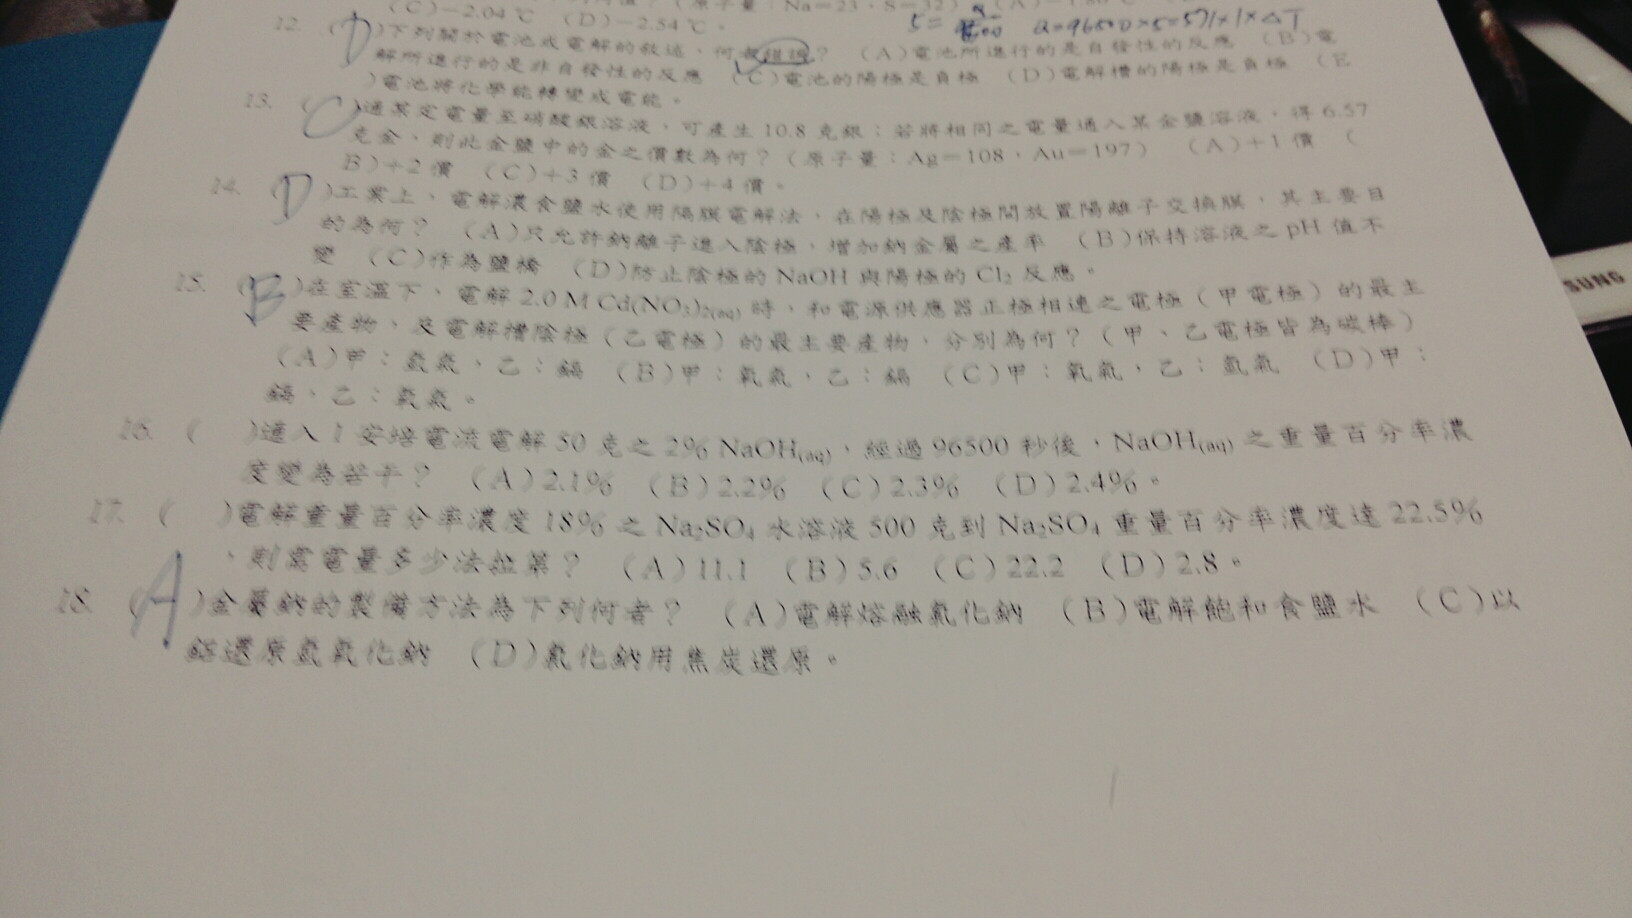 (C)－2.04 ℃ (D)－2.54 ℃。
12. (D)下列關於電池或電解的敘述，何者錯誤？ (A)電池所進行的是自發性的反應 (B)電
解所進行的是非自發性的反應 (C)電池的陽極是負極 (D)電解槽的陽極是負極 (E
)電池將化學能轉變成電能。
13. (C)通某定電量至硝酸銀溶液，可產生 10.8 克銀；若將相同之電量通入某金鹽溶液，得 6.57
克金，則此金鹽中的金之價數為何？（原子量：Ag＝108，Au＝197） (A)+1 價 (
B)+2 價 (C)+3 價 (D)+4 價。
14. (D)工業上，電解濃食鹽水使用隔膜電解法，在陽極及陰極間放置陽離子交換膜，其主要目
的為何？ (A)只允許鈉離子進入陰極，增加鈉金屬之產率 (B)保持溶液之 pH 值不
變 (C)作為鹽橋 (D)防止陰極的 NaOH 與陽極的 Cl₂ 反應。
15. (B)在室溫下，電解 2.0 M Cd(NO₃)₂(aq) 時，和電源供應器正極相連之電極（甲電極）的最主
要產物，及電解槽陰極（乙電極）的最主要產物，分別為何？（甲、乙電極皆為碳棒）
(A)甲：氫氣，乙：鎘 (B)甲：氧氣，乙：鎘 (C)甲：氧氣，乙：氫氣 (D)甲：
鎘，乙：氧氣。
16. ( )通入 1 安培電流電解 50 克之 2% NaOH(aq)，經過 96500 秒後，NaOH(aq) 之重量百分率濃
度變為若干？ (A)2.1% (B)2.2% (C)2.3% (D)2.4%。
17. ( )電解重量百分率濃度 18% 之 Na₂SO₄ 水溶液 500 克到 Na₂SO₄ 重量百分率濃度達 22.5%
，則需電量多少法拉第？ (A)11.1 (B)5.6 (C)22.2 (D)2.8。
18. (A)金屬鈉的製備方法為下列何者？ (A)電解熔融氯化鈉 (B)電解飽和食鹽水 (C)以
鋁還原氫氧化鈉 (D)氯化鈉用焦炭還原。
SUNG